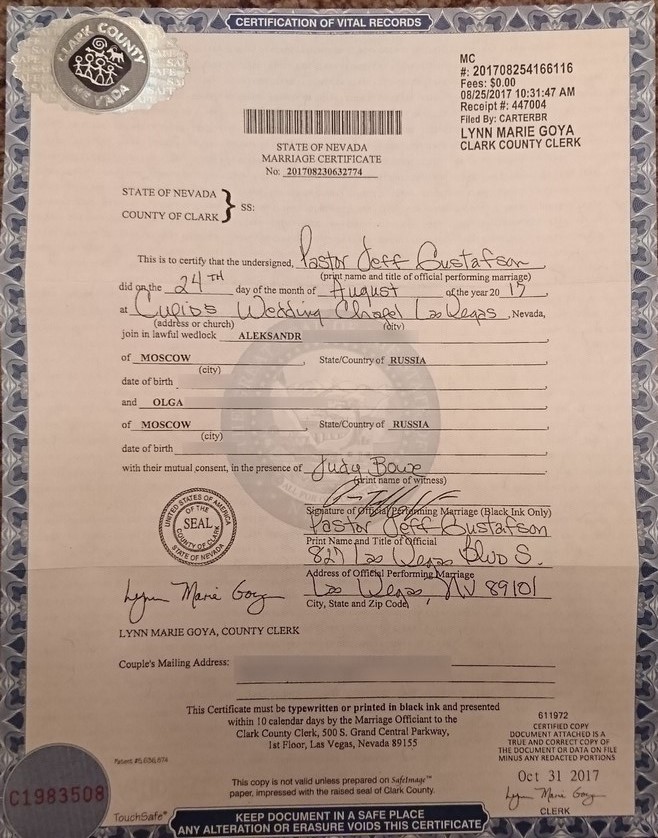 CERTIFICATION OF VITAL RECORDS
CLARK COUNTY
NEVADA
MC
#: 201708254166116
Fees: $0.00
08/25/2017 10:31:47 AM
Receipt #: 447004
Filed By: CARTERBR
LYNN MARIE GOYA
CLARK COUNTY CLERK
STATE OF NEVADA
MARRIAGE CERTIFICATE
No: 201708230632774
STATE OF NEVADA
COUNTY OF CLARK
} SS:
This is to certify that the undersigned, Pastor Jeff Gustafson
(print name and title of official performing marriage)
did on the 24TH day of the month of August of the year 20 17
at Cupids Wedding Chapel Las Vegas, Nevada,
(address or church) (city)
join in lawful wedlock ALEKSANDR
of MOSCOW, State/Country of RUSSIA
(city)
date of birth
and OLGA
of MOSCOW, State/Country of RUSSIA
(city)
date of birth
with their mutual consent, in the presence of Judy Bowe
(print name of witness)
Signature of Official Performing Marriage (Black Ink Only)
Pastor Jeff Gustafson
Print Name and Title of Official
827 Las Vegas Blvd S.
Address of Official Performing Marriage
Las Vegas, NV 89101
City, State and Zip Code
UNITED STATES OF AMERICA
OF THE
SEAL
COUNTY OF CLARK
STATE OF NEVADA
Lynn Marie Goya
LYNN MARIE GOYA, COUNTY CLERK
Couple's Mailing Address:
This Certificate must be typewritten or printed in black ink and presented
within 10 calendar days by the Marriage Officiant to the
Clark County Clerk, 500 S. Grand Central Parkway,
1st Floor, Las Vegas, Nevada 89155
611972
CERTIFIED COPY
DOCUMENT ATTACHED IS A
TRUE AND CORRECT COPY OF
THE DOCUMENT OR DATA ON FILE
MINUS ANY REDACTED PORTIONS
Oct 31 2017
Lynn Marie Goya
CLERK
This copy is not valid unless prepared on SafeImage™
paper, impressed with the raised seal of Clark County.
C1983508
TouchSafe®
KEEP DOCUMENT IN A SAFE PLACE
ANY ALTERATION OR ERASURE VOIDS THIS CERTIFICATE